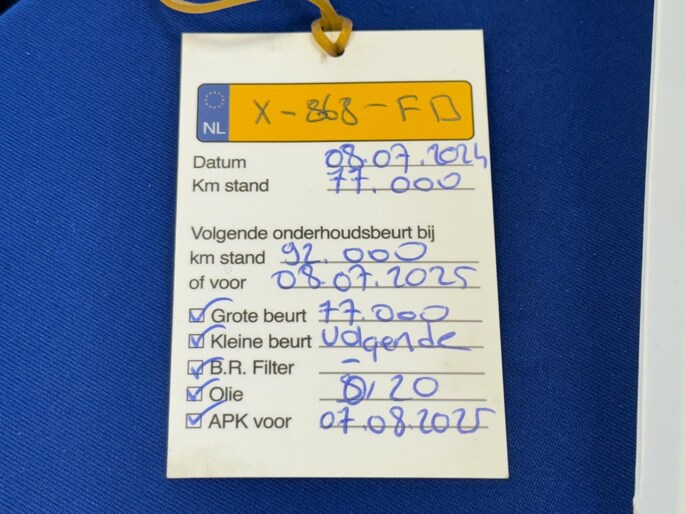 NL X-868-FD
Datum 08.07.2024
Km stand 77.000
Volgende onderhoudsbeurt bij
km stand 92.000
of voor 08.07.2025
Grote beurt 77.000
Kleine beurt volgende
B.R. Filter –
Olie 0,20
APK voor 07.08.2025